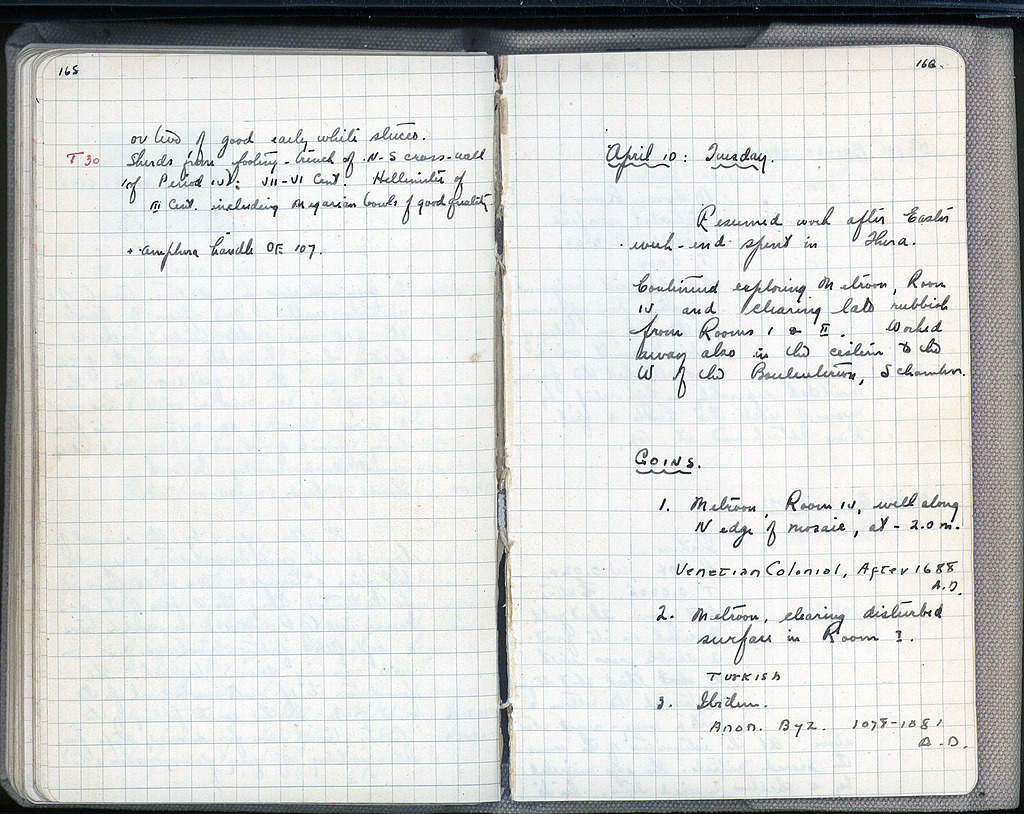 165
or two of good early white stucco.
T 30
Sherds from footing-trench of N-S cross-wall
of Period IV: VII-VI Cent. Hellenistic of
III Cent. including Megarian bowls of good quality
+ amphora handle OE 107.
166.
April 10: Tuesday.
Resumed work after Easter
week-end spent in Thera.
Continued exploring Metroon, Room
IV and clearing late rubbish
from Rooms I & II. Worked
away also in the cistern to the
W of the Bouleuterion, S chamber.
COINS.
1. Metroon, Room IV, well along
N edge of mosaic, at - 2.0 m.
Venetian Colonial, After 1688
A.D.
2. Metroon, clearing disturbed
surface in Room I.
Turkish
3. Ibidem.
Anon. Byz. 1078-1081
A.D.